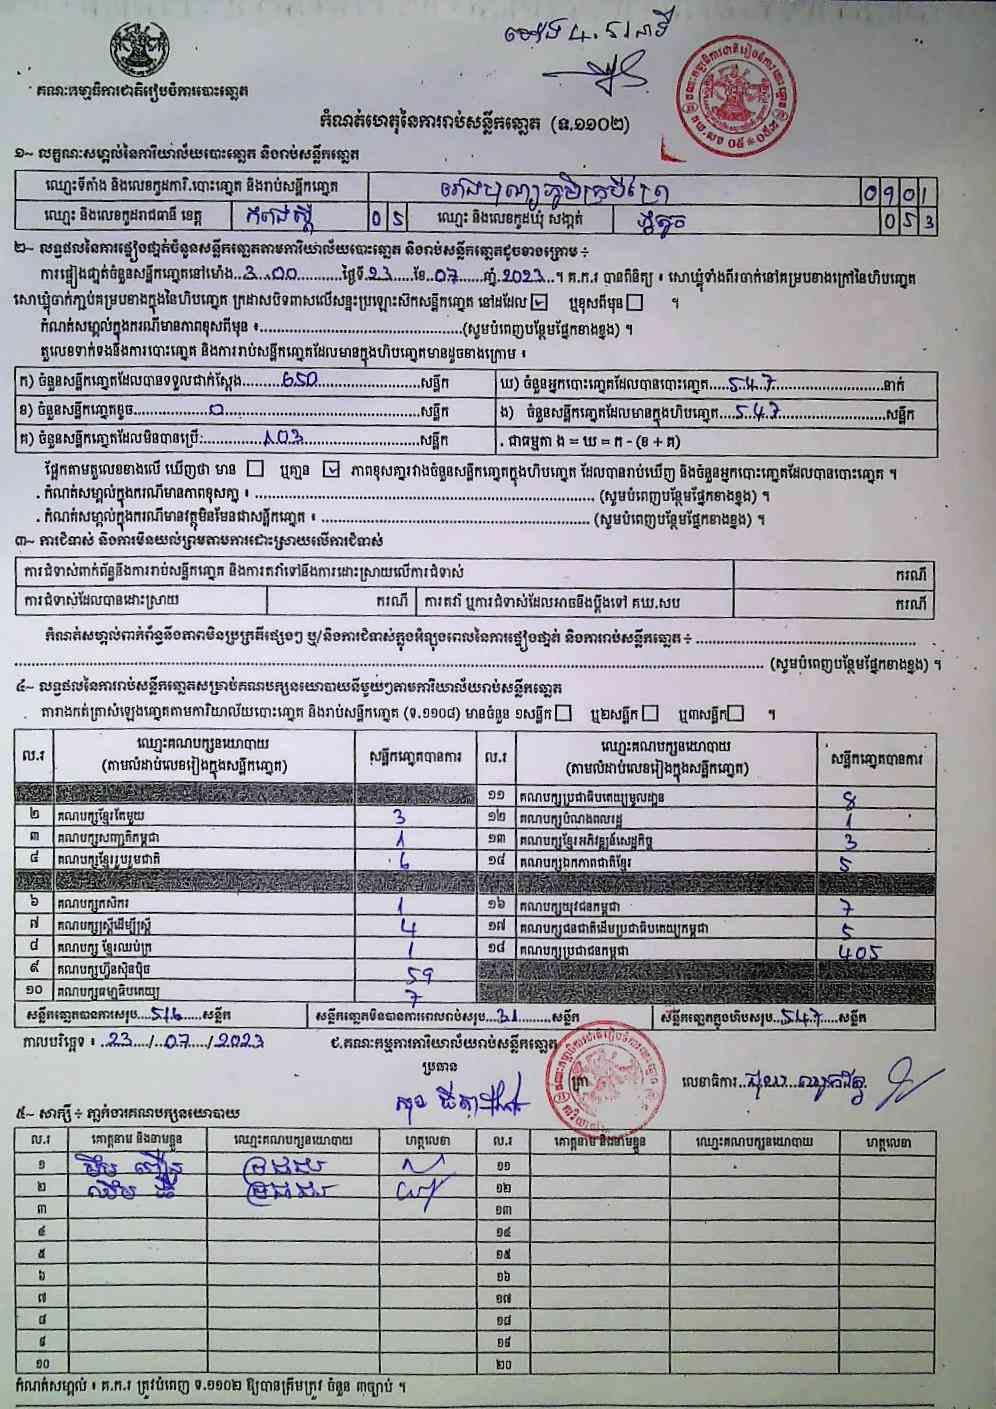 ម៉ោង ៤.៥ នាទី
គណៈកម្មាធិការជាតិរៀបចំការបោះឆ្នោត
កំណត់ហេតុនៃការរាប់សន្លឹកឆ្នោត (ទ.១១០២)
១~ លក្ខណៈសម្គាល់នៃការិយាល័យបោះឆ្នោត និងរាប់សន្លឹកឆ្នោត
ឈ្មោះទីតាំង និងលេខកូដការិ.បោះឆ្នោត និងរាប់សន្លឹកឆ្នោត 0901
ឈ្មោះ និងលេខកូដរាជធានី ខេត្ត កំពង់ស្ពឺ 05 ឈ្មោះ និងលេខកូដឃុំ សង្កាត់ 053
២~ លទ្ធផលនៃការផ្ទៀងផ្ទាត់ចំនួនសន្លឹកឆ្នោតតាមការិយាល័យបោះឆ្នោត និងរាប់សន្លឹកឆ្នោតដូចខាងក្រោម ÷
ការផ្ទៀងផ្ទាត់ចំនួនសន្លឹកឆ្នោតនៅម៉ោង...3.00......ថ្ងៃទី.23......ខែ.07......ឆ្នាំ.2023..។ គ.ក.រ បានពិនិត្យ ៖ សោឃ្មុំទាំងពីរចាក់នៅគម្របខាងក្រៅនៃហិបឆ្នោត
សោឃ្មុំចាក់ភ្ជាប់គម្របខាងក្នុងនៃហិបឆ្នោត ក្រដាសបិទពាសលើសន្ទះប្រឡោះសឹកសន្លឹកឆ្នោត នៅដដែល ☑ ឬខុសពីមុន ☐ ។
កំណត់សម្គាល់ក្នុងករណីមានភាពខុសពីមុន ៖......(សូមបំពេញបន្ថែមផ្នែកខាងខ្នង) ។
តួលេខទាក់ទងនឹងការបោះឆ្នោត និងការរាប់សន្លឹកឆ្នោតដែលមានក្នុងហិបឆ្នោតមានដូចខាងក្រោម ៖
ក) ចំនួនសន្លឹកឆ្នោតដែលបានទទួលជាក់ស្តែង......650......សន្លឹក ឃ) ចំនួនអ្នកបោះឆ្នោតដែលបានបោះឆ្នោត.....547......នាក់
ខ) ចំនួនសន្លឹកឆ្នោតខូច......0......សន្លឹក ង) ចំនួនសន្លឹកឆ្នោតដែលមានក្នុងហិបឆ្នោត...547......សន្លឹក
គ) ចំនួនសន្លឹកឆ្នោតដែលមិនបានប្រើ:......103......សន្លឹក . ជាធម្មតា ង = ឃ = ក - (ខ + គ)
ផ្អែកតាមតួលេខខាងលើ ឃើញថា មាន ☐ ឬគ្មាន ☑ ភាពខុសគ្នារវាងចំនួនសន្លឹកឆ្នោតក្នុងហិបឆ្នោត ដែលបានរាប់ឃើញ និងចំនួនអ្នកបោះឆ្នោតដែលបានបោះឆ្នោត ។
. កំណត់សម្គាល់ក្នុងករណីមានភាពខុសគ្នា ៖ ...... (សូមបំពេញបន្ថែមផ្នែកខាងខ្នង) ។
. កំណត់សម្គាល់ក្នុងករណីមានវត្ថុមិនមែនជាសន្លឹកឆ្នោត ៖ ...... (សូមបំពេញបន្ថែមផ្នែកខាងខ្នង) ។
៣~ ការជំទាស់ និងការមិនយល់ព្រមតាមការដោះស្រាយលើការជំទាស់
ការជំទាស់ពាក់ព័ន្ធនឹងការរាប់សន្លឹកឆ្នោត និងការតវ៉ាទៅនឹងការដោះស្រាយលើការជំទាស់ ករណី
ការជំទាស់ដែលបានដោះស្រាយ ករណី ការតវ៉ា ឬការជំទាស់ដែលអាចនឹងប្តឹងទៅ គឃ.សប ករណី
កំណត់សម្គាល់ពាក់ព័ន្ធនឹងភាពមិនប្រក្រតីផ្សេងៗ ឬ/និងការជំទាស់ក្នុងអំឡុងពេលនៃការផ្ទៀងផ្ទាត់ និងការរាប់សន្លឹកឆ្នោត ÷ ......
...... (សូមបំពេញបន្ថែមផ្នែកខាងខ្នង) ។
៤~ លទ្ធផលនៃការរាប់សន្លឹកឆ្នោតសម្រាប់គណបក្សនយោបាយនីមួយៗតាមការិយាល័យរាប់សន្លឹកឆ្នោត
តារាងកត់ត្រាសំឡេងឆ្នោតតាមការិយាល័យបោះឆ្នោត និងរាប់សន្លឹកឆ្នោត (ទ.១១០៨) មានចំនួន ១សន្លឹក ☐ ឬ២សន្លឹក ☐ ឬ៣សន្លឹក ☐ ។
ល.រ ឈ្មោះគណបក្សនយោបាយ (តាមលំដាប់លេខរៀងក្នុងសន្លឹកឆ្នោត) សន្លឹកឆ្នោតបានការ ល.រ ឈ្មោះគណបក្សនយោបាយ (តាមលំដាប់លេខរៀងក្នុងសន្លឹកឆ្នោត) សន្លឹកឆ្នោតបានការ
១១ គណបក្សប្រជាធិបតេយ្យមូលដ្ឋាន 8
២ គណបក្សខ្មែរតែមួយ 3 ១២ គណបក្សបំណងពលរដ្ឋ 1
៣ គណបក្សសញ្ជាតិកម្ពុជា 1 ១៣ គណបក្សខ្មែរអភិវឌ្ឍន៍សេដ្ឋកិច្ច 3
៤ គណបក្សខ្មែររួបរួមជាតិ 6 ១៤ គណបក្សឯកភាពជាតិខ្មែរ 5
៦ គណបក្សកសិករ 1 ១៦ គណបក្សយុវជនកម្ពុជា 7
៧ គណបក្សស្ត្រីដើម្បីស្ត្រី 4 ១៧ គណបក្សជនជាតិដើមប្រជាធិបតេយ្យកម្ពុជា 5
៨ គណបក្ស ខ្មែរឈប់ក្រ 1 ១៨ គណបក្សប្រជាជនកម្ពុជា 405
៩ គណបក្សហ្វ៊ុនស៊ិនប៉ិច 59
១០ គណបក្សធម្មាធិបតេយ្យ 7
សន្លឹកឆ្នោតបានការសរុប...516.....សន្លឹក សន្លឹកឆ្នោតមិនបានការពេលរាប់សរុប...31......សន្លឹក សន្លឹកឆ្នោតក្នុងហិបសរុប...547.....សន្លឹក
កាលបរិច្ឆេទ ៖ ..23.../..07.../2023 ជ.គណៈកម្មការការិយាល័យរាប់សន្លឹកឆ្នោត
ប្រធាន
ត្រា
លេខាធិការ
៥~ សាក្សី ÷ ភ្នាក់ងារគណបក្សនយោបាយ
ល.រ គោត្តនាម និងនាមខ្លួន ឈ្មោះគណបក្សនយោបាយ ហត្ថលេខា ល.រ គោត្តនាម និងនាមខ្លួន ឈ្មោះគណបក្សនយោបាយ ហត្ថលេខា
១ ១១
២ ១២
៣ ១៣
៤ ១៤
៥ ១៥
៦ ១៦
៧ ១៧
៨ ១៨
៩ ១៩
១០ ២០
កំណត់សម្គាល់ ៖ គ.ក.រ ត្រូវបំពេញ ទ.១១០២ ឱ្យបានត្រឹមត្រូវ ចំនួន ៣ច្បាប់ ។